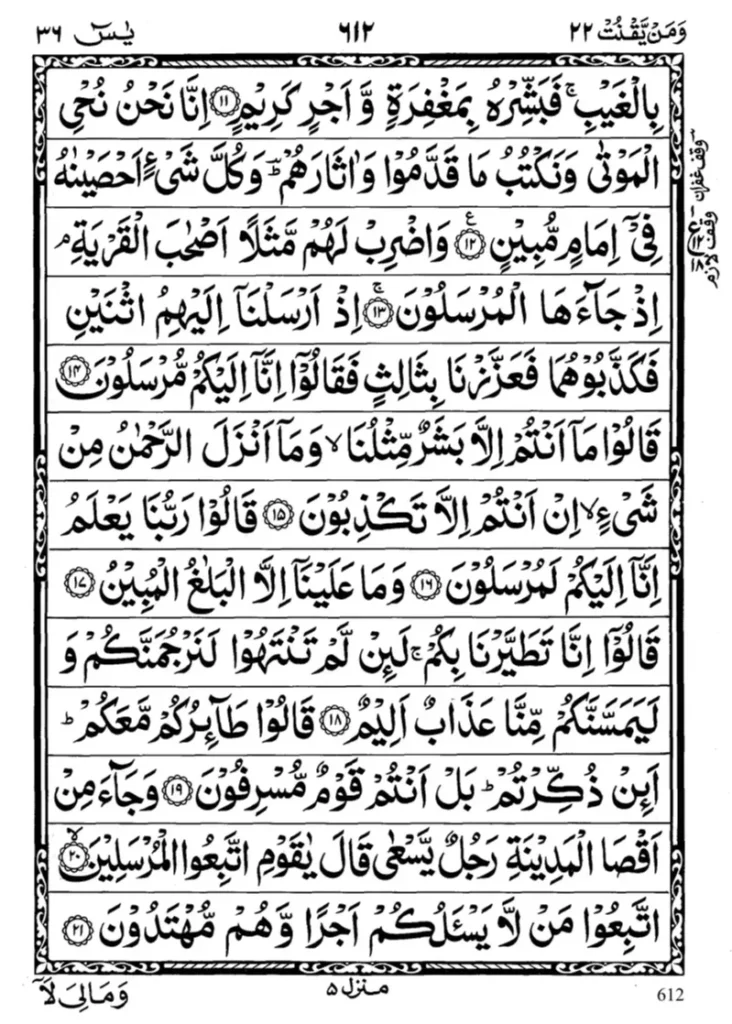 وَمَنْ يَّقْنُتْ ٢٢
٦١٢
يٰسٓ ٣٦
بِالْغَيْبِ ۚ فَبَشِّرْهُ بِمَغْفِرَةٍ وَّ اَجْرٍ كَرِيْمٍ ۝۱۱ اِنَّا نَحْنُ نُحْيِ
الْمَوْتٰى وَنَكْتُبُ مَا قَدَّمُوْا وَاٰثَارَهُمْ ؕ وَكُلَّ شَىْءٍ اَحْصَيْنٰهُ
فِىْۤ اِمَامٍ مُّبِيْنٍ ۝۱۲ ع وَاضْرِبْ لَهُمْ مَّثَلًا اَصْحٰبَ الْقَرْيَةِ ۘ
اِذْ جَآءَهَا الْمُرْسَلُوْنَ ۚ ۝۱۳ اِذْ اَرْسَلْنَاۤ اِلَيْهِمُ اثْنَيْنِ
فَكَذَّبُوْهُمَا فَعَزَّزْنَا بِثَالِثٍ فَقَالُوْۤا اِنَّاۤ اِلَيْكُمْ مُّرْسَلُوْنَ ۝۱۴
قَالُوْا مَاۤ اَنْتُمْ اِلَّا بَشَرٌ مِّثْلُنَا ۙ وَمَاۤ اَنْزَلَ الرَّحْمٰنُ مِنْ
شَىْءٍ ۙ اِنْ اَنْتُمْ اِلَّا تَكْذِبُوْنَ ۝۱۵ قَالُوْا رَبُّنَا يَعْلَمُ
اِنَّاۤ اِلَيْكُمْ لَمُرْسَلُوْنَ ۝۱۶ وَمَا عَلَيْنَاۤ اِلَّا الْبَلٰغُ الْمُبِيْنُ ۝۱۷
قَالُوْۤا اِنَّا تَطَيَّرْنَا بِكُمْ ۚ لَئِنْ لَّمْ تَنْتَهُوْا لَنَرْجُمَنَّكُمْ وَ
لَيَمَسَّنَّكُمْ مِّنَّا عَذَابٌ اَلِيْمٌ ۝۱۸ قَالُوْا طَآئِرُكُمْ مَّعَكُمْ ؕ
اَئِنْ ذُكِّرْتُمْ ؕ بَلْ اَنْتُمْ قَوْمٌ مُّسْرِفُوْنَ ۝۱۹ وَجَآءَ مِنْ
اَقْصَا الْمَدِيْنَةِ رَجُلٌ يَّسْعٰى قَالَ يٰقَوْمِ اتَّبِعُوا الْمُرْسَلِيْنَ ۙ ۝۲۰
اتَّبِعُوْا مَنْ لَّا يَسْئَلُكُمْ اَجْرًا وَّهُمْ مُّهْتَدُوْنَ ۝۲۱
وقف غفران
ع ١٢
وقف لازم
612
منزل ۵
وَمَالِىَ لَاۤ